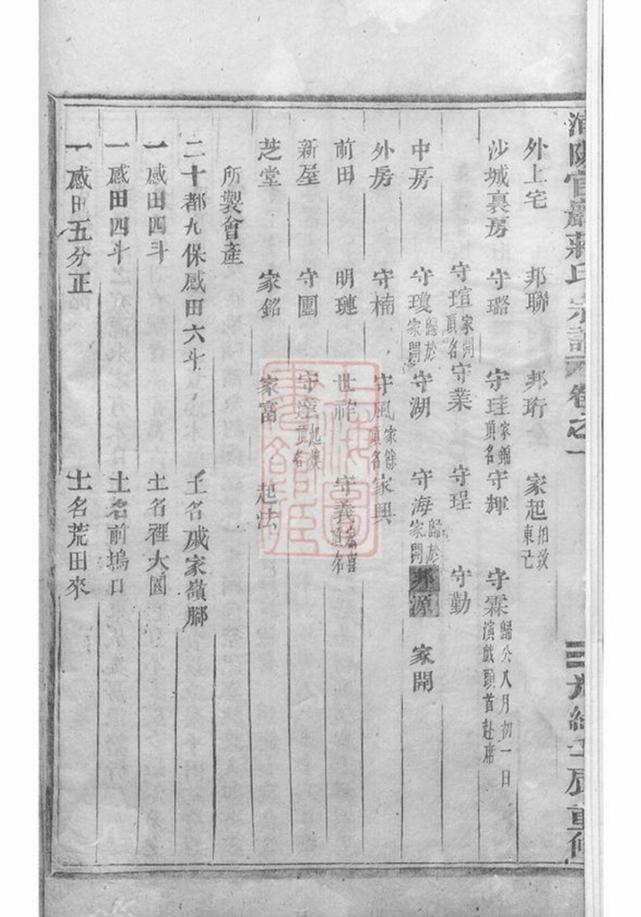 浦陽官巖蔣氏宗譜 卷之一 光緒壬辰重修
外上宅 邦聯 邦珩 家起
沙城裏房 守璐 守珪家錦頂名 守輝 守霖歸公八月初一日演戲頭首赴席
守瑄家開頂名 守業 守珵 守勤
中房 守瓊歸於家開 守湖 守海歸於家開 邦源 家開
外房 守楠 守風家餘頂名 家興
前田 明璉 世祚 守義
新屋 守圑 頂名
芝堂 家銘 家富 起法
所製會產
二十都九保慼田六斗 土名戚家嶺腳
一慼田四斗 土名裡大園
一慼田四斗 土名前塢口
一慼田五分正 土名荒田來